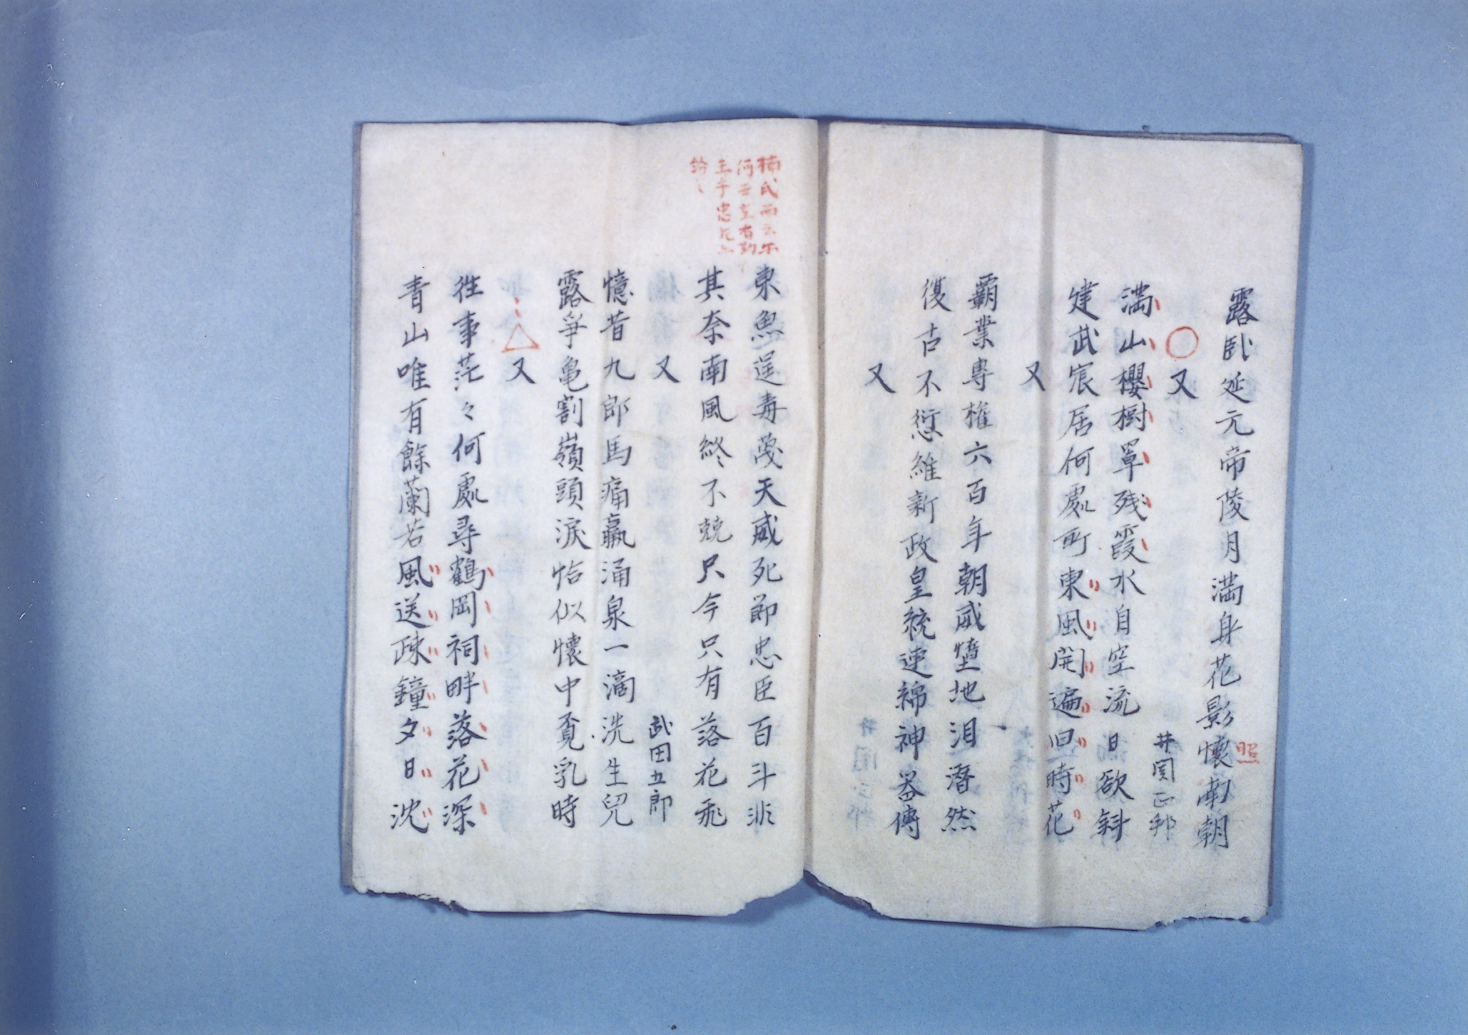 露臥延元帝陵月満身花影懐南朝
照
○又 井関正郎
満山櫻樹罩残霞水自空流日欲斜
建武宸居何處所東風開遍旧時花
又
覇業專権六百年朝威墮地泪潛然
復古不愆維新政皇統連綿神器傳
又
楠氏而云尓
東魚逞毒蔑天威死節忠臣百斗非
其奈南風終不競只今只有落花飛
又 武田五郎
憶昔九郎馬痛羸涌泉一滴洗生兒
露爭亀割嶺頭涙恰似懐中覔乳時
△又
往事茫々何處尋鶴岡祠畔落花深
青山唯有餘蘭若風送疎鐘夕日沈